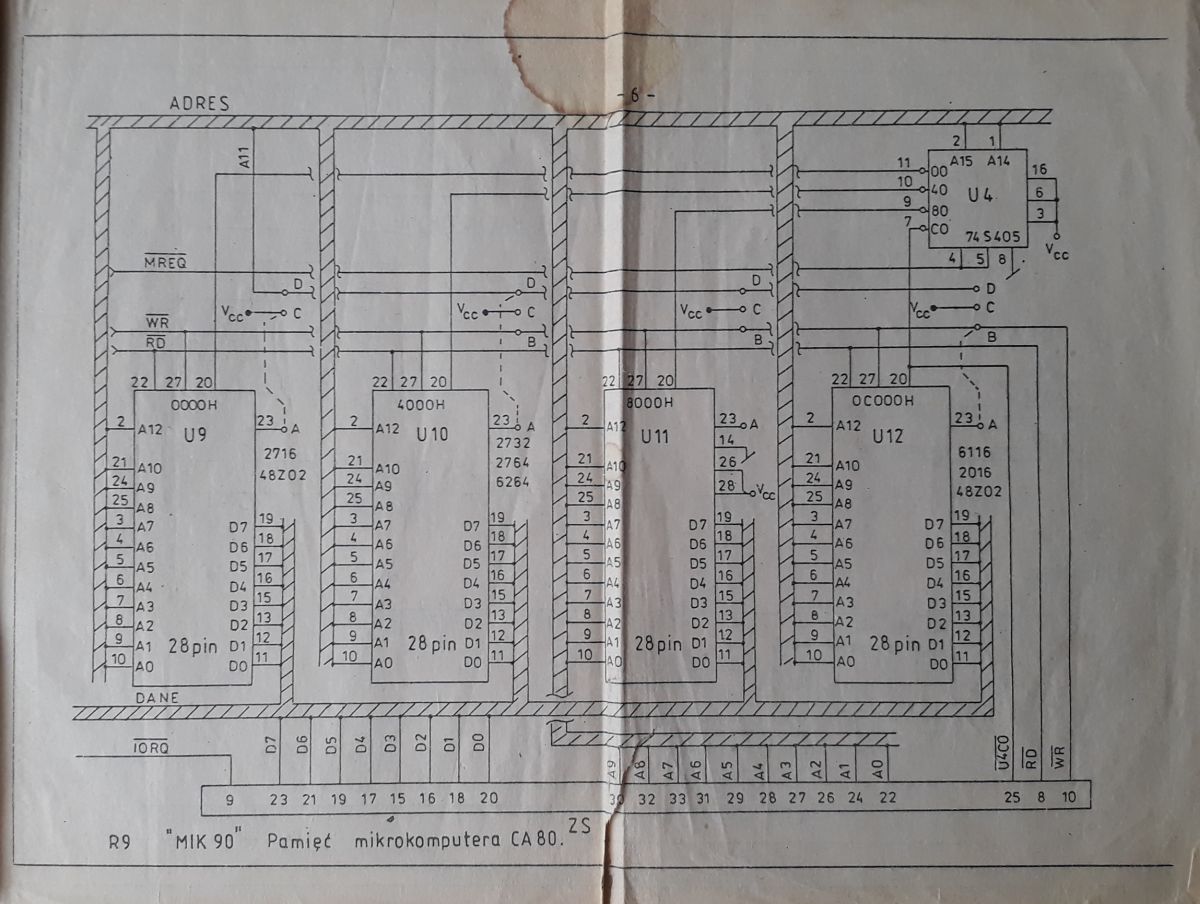 - 6 -
ADRES
A11
2 1
A15 A14
11 00 16
10 40 U4 6
9 80 3
7 C0 74S405 Vcc
4 5 8
MREQ
D D D
Vcc C Vcc C C Vcc C
WR
B B B
RD
22 27 20 22 27 20 22 27 20 22 27 20
0000H 4000H 8000H 0C000H
2 A12 U9 23 A 2 A12 U10 23 A 2 A12 U11 23 A 2 A12 U12 23 A
2716 2732 14 6116
48Z02 2764 26 2016
6264 28 Vcc 48Z02
21 A10 21 A10 21 A10 21 A10
24 A9 24 A9 24 A9 24 A9
25 A8 25 A8 25 A8 25 A8
3 A7 D7 19 3 A7 D7 19 3 A7 D7 19 3 A7 D7 19
4 A6 D6 18 4 A6 D6 18 4 A6 D6 18 4 A6 D6 18
5 A5 D5 17 5 A5 D5 17 5 A5 D5 17 5 A5 D5 17
6 A4 D4 16 6 A4 D4 16 6 A4 D4 16 6 A4 D4 16
7 A3 D3 15 7 A3 D3 15 7 A3 D3 15 7 A3 D3 15
8 A2 D2 13 8 A2 D2 13 8 A2 D2 13 8 A2 D2 13
9 A1 28pin D1 12 9 A1 28pin D1 12 9 A1 28pin D1 12 9 A1 28pin D1 12
10 A0 D0 11 10 A0 D0 11 10 A0 D0 11 10 A0 D0 11
DANE
IORQ D7 D6 D5 D4 D3 D2 D1 D0 A9 A8 A7 A6 A5 A4 A3 A2 A1 A0 U4C0 RD WR
9 23 21 19 17 15 16 18 20 30 32 33 31 29 28 27 26 24 22 25 8 10
R9 "MIK 90" Pamięć mikrokomputera CA 80. ZS